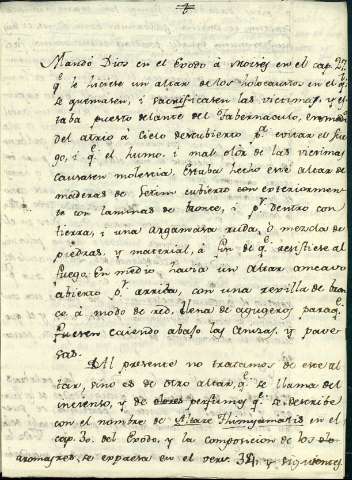 Mandó Dios en el Exodo á Moises en el cap. 27
q.e le hiciese un altar de los holocaustos en el q.e
se quemasen, i sacrificasen las victimas, y es
taba puesto delante del tabernaculo, en medio
del atrio á cielo descubierto p.a evitar el fue
go, i q.e el humo, i mal olor de las victimas
causasen molestia. Estaba hecho este altar de
maderas de Setim cubierto con exteriormen
te con laminas de bronce, i p.r dentro con
tierra, i una argamasa ruda, ò mezcla de
piedras, y material, á fin de q.e resistiese al
fuego. En medio havia un altar
abierto p.r arriba, con una rexilla de bron
ce á modo de red, llena de agugeros para q.e
fuesen caiendo abajo las cenizas, y pave
sas.
Al presente no tratamos de este al
tar, sino es de otro altar, q.e se llama del
incienso, y de olores perfumes q.e se describe
con el nombre de Altare Thimyamatis en el
cap. 30. del Exodo, y la composicion de los
aromas, se expresa en el vers. 34 y siguientes